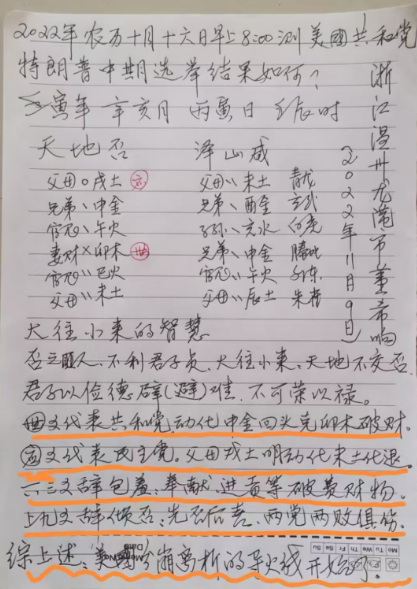 2022年农历十月十六日早上8:00测美國共和党
特朗普中期选举结果如何?
壬寅年 辛亥月 丙寅日 壬辰时
天地否 泽山咸
父母o戌土 应 父母、、未土 青龙
兄弟、申金 兄弟、酉金 玄武
官鬼、午火 子孙、亥水 白虎
妻财×卯木 世 兄弟、申金 腾蛇
官鬼、、巳火 官鬼、、午火 勾陈
父母、、未土 父母、、辰土 朱雀
浙江温州龙港市董希响
2022年11月9日
大往小来的智慧
否之匪人、不利君子贞、大往小来、天地不交否、
君子以俭德辟(避)难、不可荣以禄。
世爻代表共和党,动化申金回头克卯木破财。
应爻代表民主党。父母戌土明动化未土化退。
六三爻辞包羞、奉献、进贡等破费财物。
上九爻辞倾否、先否后喜、两党两败俱伤。
综上述、美國分崩离析的导火线开始了。
Mo Tu We Th Fr Sa Su